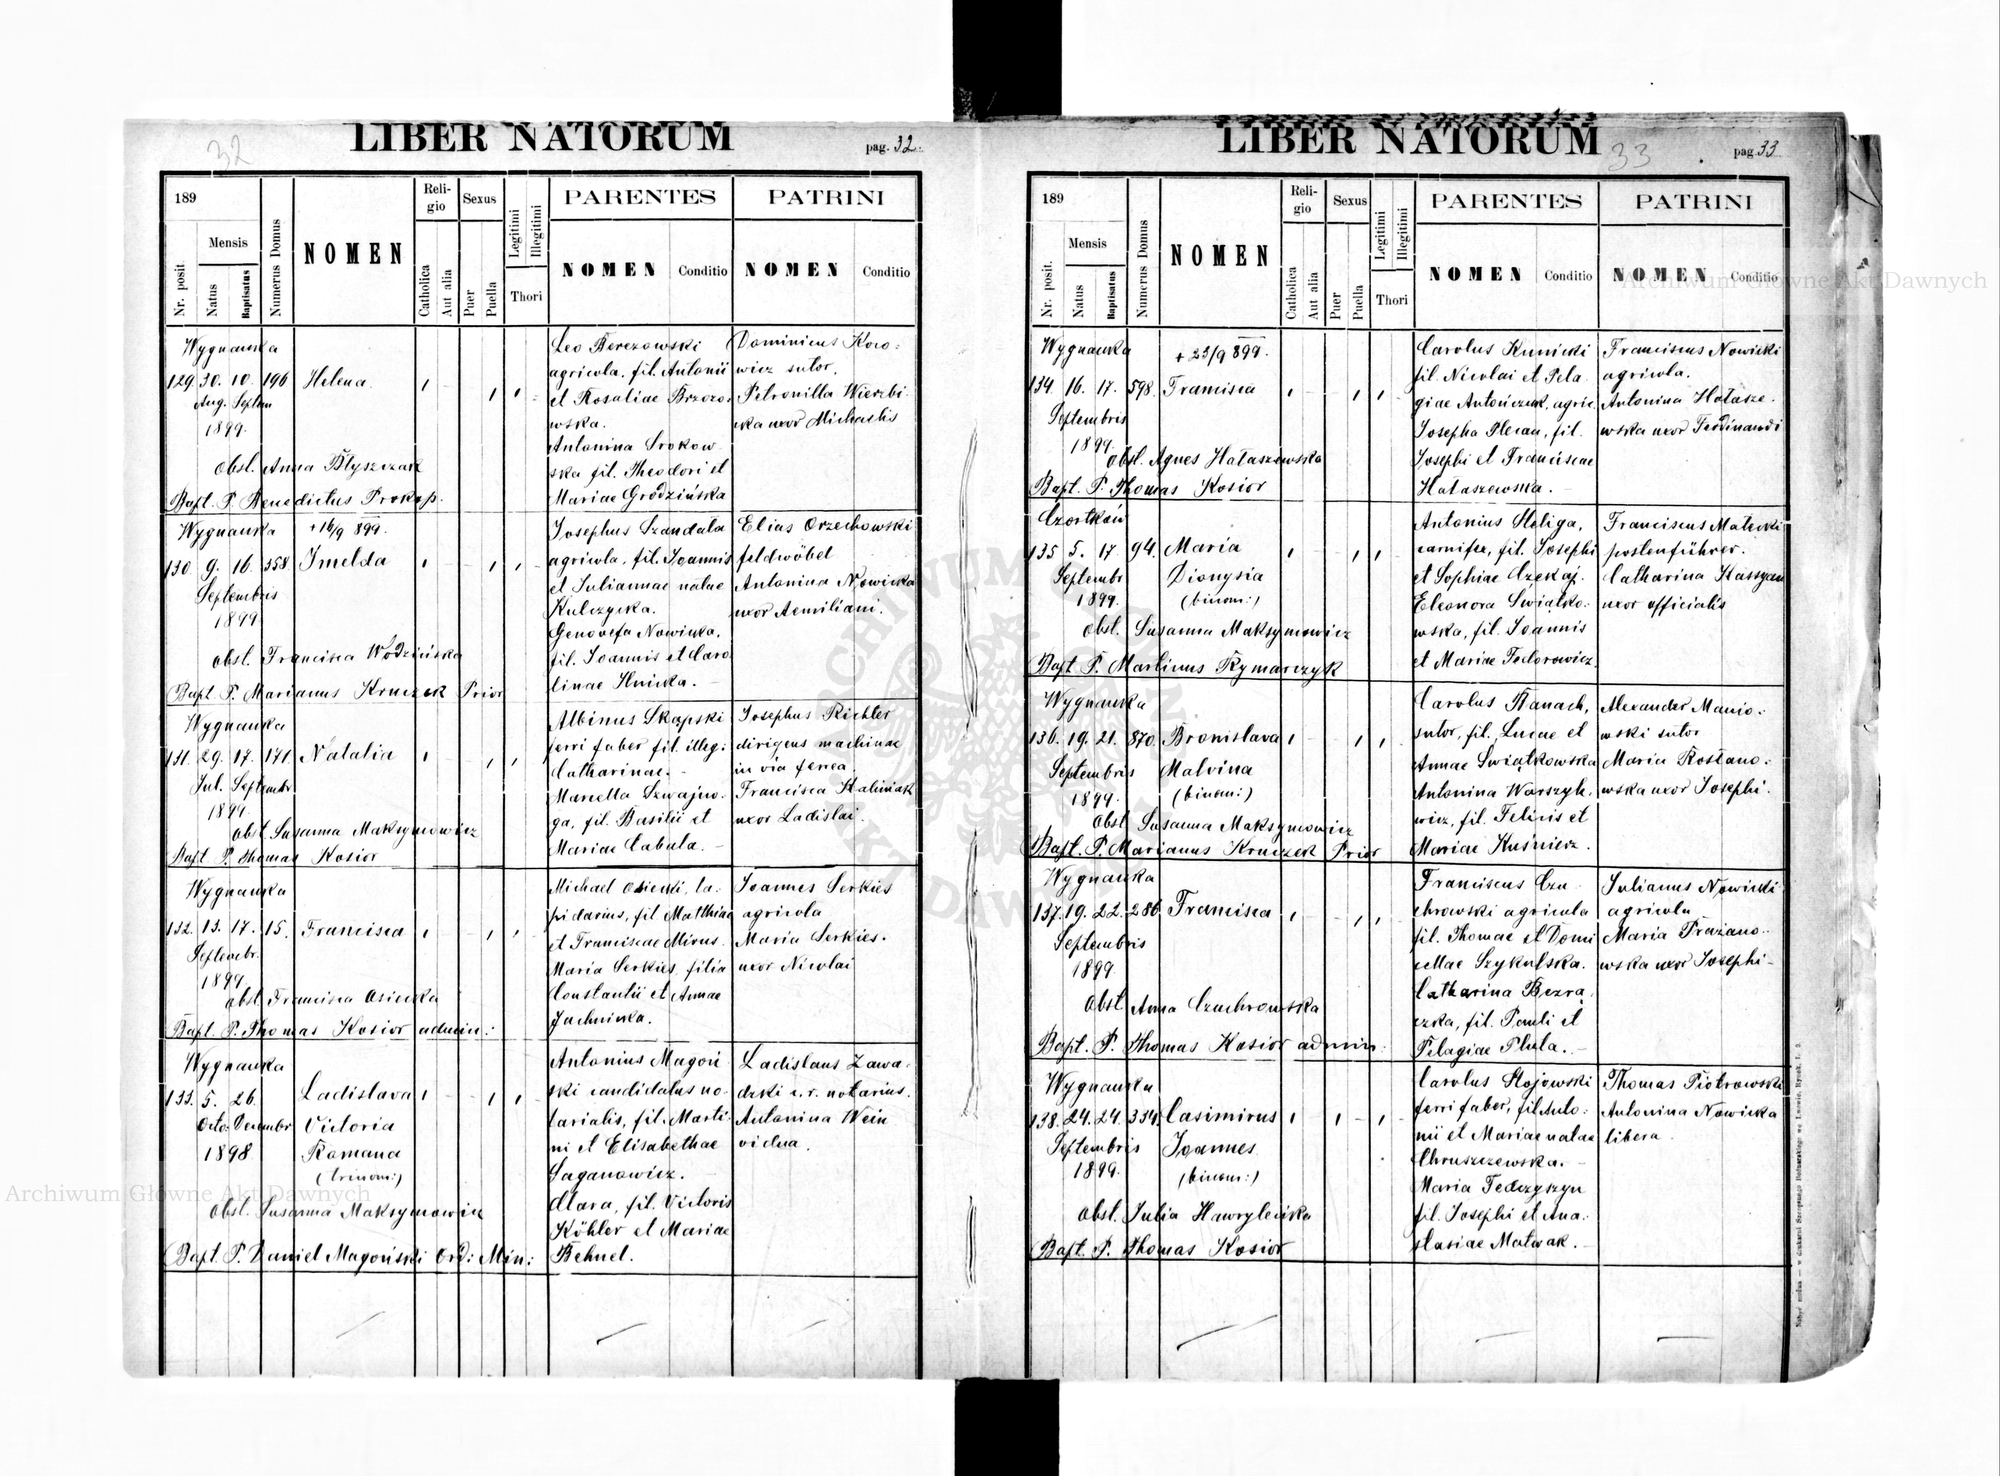 LIBER NATORUM
pag. 32.
32
189
Mensis
Nr. posit.
Natus
Baptisatus
Numerus Domus
NOMEN
Religio
Catholica
Aut alia
Sexus
Puer
Puella
Legitimi
Illegitimi
Thori
PARENTES
NOMEN
Conditio
PATRINI
NOMEN
Conditio
Wygnanka
129. 30. 10. 196 Helena
Aug. Septem
1899.
obst. Anna Błyszczak
Bapt. P. Benedictus Prokop.
Leo Berezowski
agricola, fil. Antonii
et Rosaliae Brzozo-
wska.
Antonina Srokow-
ska fil. Theodori et
Mariae Grodzińska
Dominicus Koro-
wicz sutor.
Petronilla Wierzbi-
cka uxor Michaelis
Wygnanka + 16/9 899.
130. 9. 16. 358 Imelda
Septembris
1899
obst. Francisca Wodzińska
Bapt. P. Marianus Kruczek Prior
Josephus Szandała
agricola, fil. Joannis
et Juliannae natae
Kulczycka.
Genovefa Nowicka,
fil. Joannis et Caro
linae Hnicka.
Elias Orzechowski
feldwöbel
Antonina Nowicka
uxor Aemiliani.
Wygnanka
131. 29. 17. 171. Natalia
Jul. Septembr
1899.
obst. Susanna Maksymowicz
Bapt. P. Thomas Kosior
Albinus Skapski
ferri faber fil. illeg:
Catharinae.
Marella Szwajno-
ga, fil. Basilii et
Mariae Cabula.
Josephus Richter
dirigens machinae
in via ferrea.
Francisca Kaliniak
uxor Ladislai.
Wygnanka
132. 13. 17. 15. Francisca
Septembr.
1899
obst. Francisca Osiecka
Bapt. P. Thomas Kosior admin:
Michael Osiecki, la-
pidarius, fil Matthiae
et Franciscae Mirus.
Maria Serkies, filia
Constantii et Annae
Jachnicka.
Joannes Serkies
agricola
Maria Serkies.
uxor Nicolai
Wygnanka
133. 5. 26. Ladislava
Octo. Decembr Victoria
1898 Romana
(trinom:)
obst. Susanna Maksymowicz
Bapt. P. Daniel Magoński Ord: Min:
Antonius Magoń
ski candidatus no-
tarialis, fil. Marti-
ni et Elisabethae
Saganowicz.
Clara, fil. Victoris
Köhler et Mariae
Behnel.
Ladislaus Zawa-
dzki c. r. notarius.
Antonina Wein
vidua.
LIBER NATORUM
33
pag. 33
189
Mensis
Nr. posit.
Natus
Baptisatus
Numerus Domus
NOMEN
Religio
Catholica
Aut alia
Sexus
Puer
Puella
Legitimi
Illegitimi
Thori
PARENTES
NOMEN
Conditio
PATRINI
NOMEN
Conditio
Wygnanka + 23/9 899.
134. 16. 17. 598. Francisca
Septembris
1899
obst. Agnes Hałaszewska
Bapt. P. Thomas Kosior
Carolus Kunicki
fil. Nicolai et Pela
giae Antończuk, agric.
Josepha Plecan, fil.
Josephi et Franciscae
Hałaszewska.
Franciscus Nowicki
agricola.
Antonina Hałasze-
wska uxor Ferdinandi
Czortków
135 5. 17 94. Maria
Septembr Dionysia
1899. (binom:)
obst. Susanna Maksymowicz
Bapt. P. Martinus Rymarczyk
Antonius Heliga,
carnifex, fil. Josephi
et Sophiae Czekaj.
Eleonora Swiątko-
wska, fil. Joannis
et Mariae Todorowicz.
Franciscus Małecki
postenführer.
Catharina Kassyan
uxor officialis
Wygnanka
136. 19. 21. 870. Bronislava
Septembris Malvina
1899. (binom:)
obst Susanna Maksymowicz
Bapt. P. Marianus Kruczek Prior
Carolus Banach,
sutor, fil. Lucae et
Annae Swiątkowska
Antonina Warszyk-
wicz, fil. Felicis et
Mariae Kuśnierz.
Alexander Manio-
wski sutor
Maria Rosłano-
wska uxor Josephi.
Wygnanka
137. 19. 22. 286. Francisca
Septembris
1899.
obst Anna Czuchrowska
Bapt. P. Thomas Kosior admin.
Franciscus Czu-
chrowski agricola
fil. Thomae et Domi
cellae Szykulska.
Catharina Bezra
czka, fil. Pauli et
Pelagiae Pluta.
Julianus Nowicki
agricola
Maria Prażano-
wska uxor Josephi
Wygnanka
138. 24. 24. 334. Casimirus
Septembris Joannes
1899. (binom:)
obst. Julia Hawrylecka
Bapt. P. Thomas Kosior
Carolus Stojowski
ferri faber, fil. Anto-
nii et Mariae natae
Chruszczewska.
Maria Fedczyszyn
fil. Josephi et Ana-
stasiae Matwak.
Thomas Piotrowski
Antonina Nowicka
libera.
Archiwum Główne Akt Dawnych
Archiwum Główne Akt Dawnych
ARCHIWUM GŁÓWNE AKT DAWNYCH